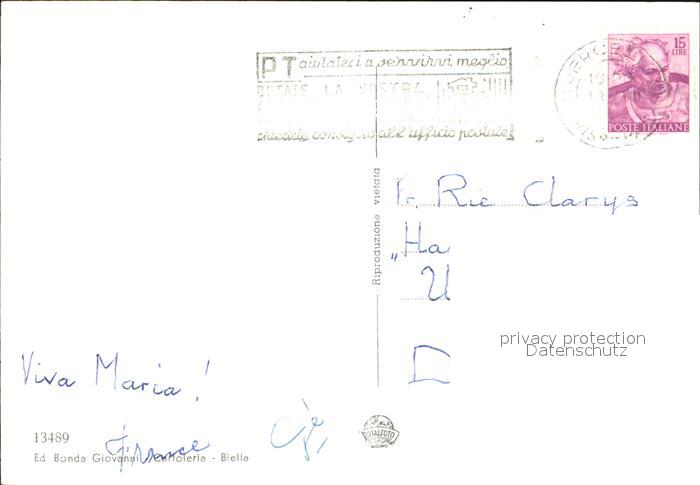 PT aiutateci a servirvi meglio
DOTATE LA VOSTRA
chiedete consiglio all'ufficio postale
15
LIRE
POSTE ITALIANE
Riproduzione vietata
Fr. Rie Clarys
„Ha
U
privacy protection
Datenschutz
Viva Maria!
13489
France
Ed. Bonda Giovanni - Cartoleria - Biella